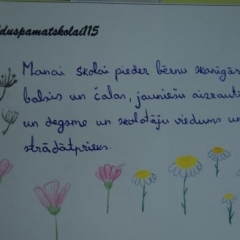 duspamatskolai115
Manai skolai pieder bērnu skanīgās
balsis un čalas, jauniešu aizrautī
un degsme un skolotāju viedums un
strādātprieks.